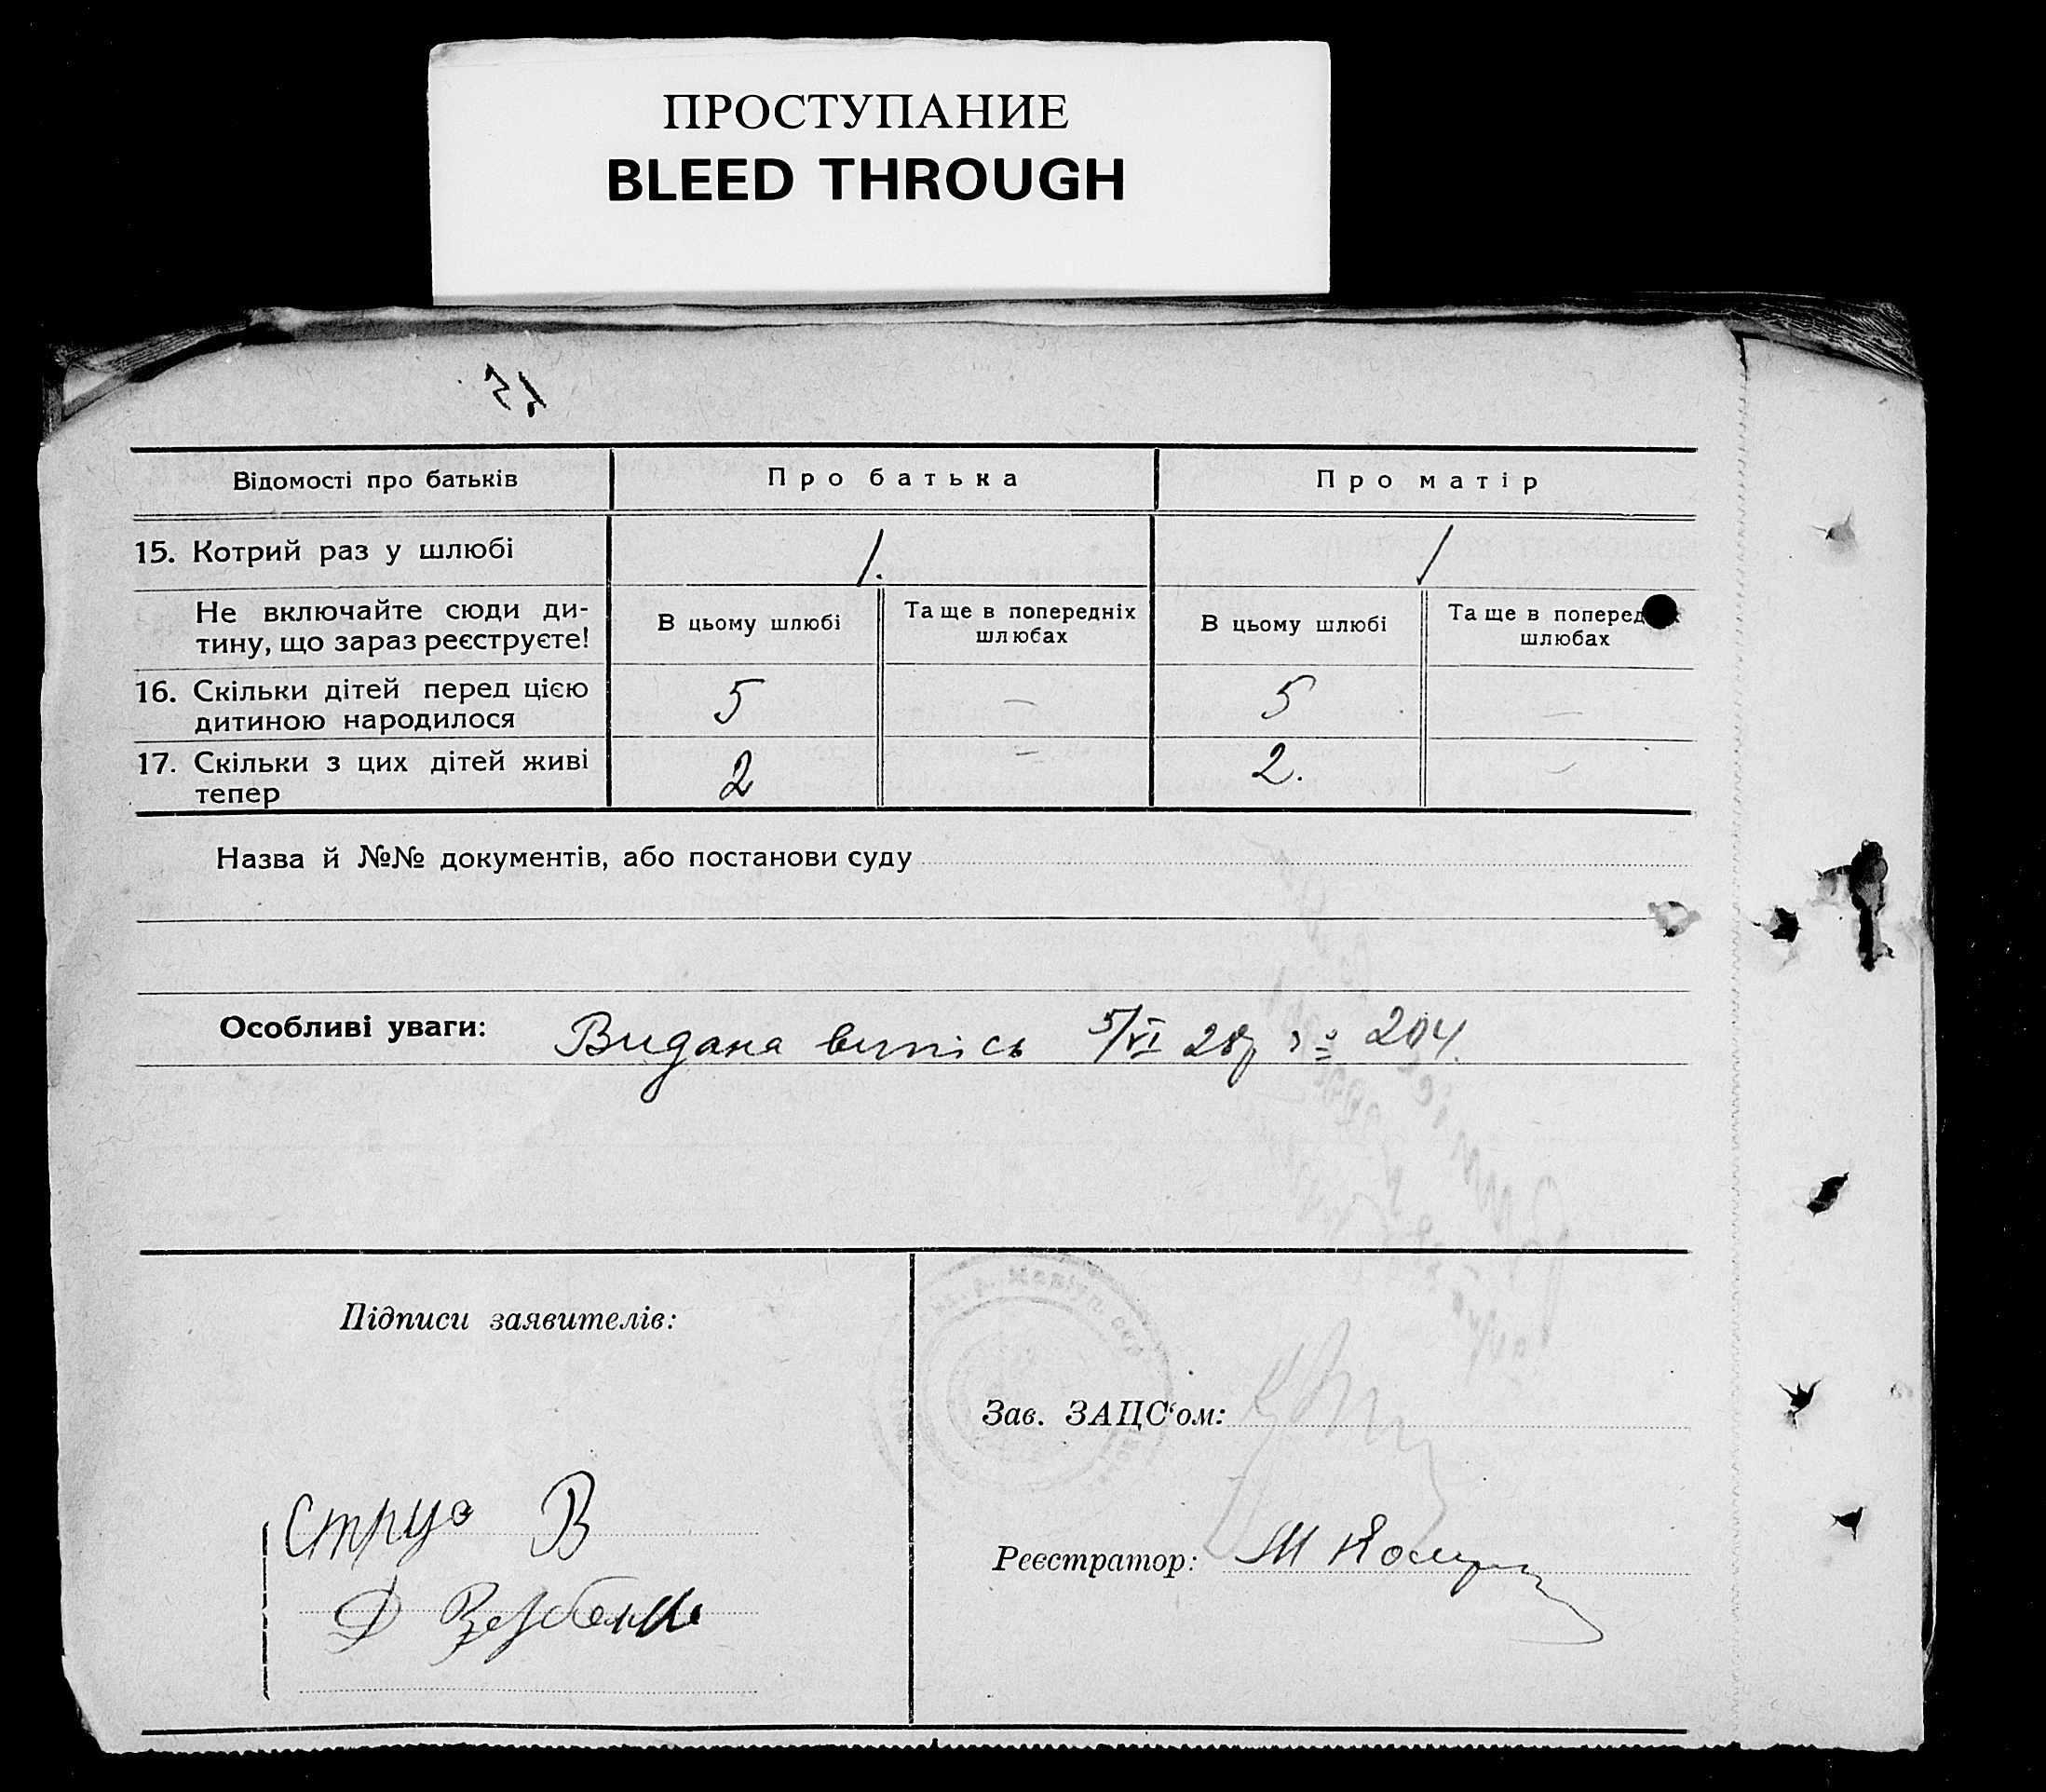 ПРОСТУПАНИЕ
BLEED THROUGH
Відомості про батьків Про батька Про матір
15. Котрий раз у шлюбі 1. 1
Не включайте сюди ди-
тину, що зараз реєструєте!
В цьому шлюбі Та ще в попередніх шлюбах В цьому шлюбі Та ще в поперед шлюбах
16. Скільки дітей перед цією
дитиною народилося 5 — 5 —
17. Скільки з цих дітей живі
тепер 2 — 2. —
Назва й №№ документів, або постанови суду
Особливі уваги: Видана випісь 5/VI 28р 204.
Підписи заявителів:
Зав. ЗАЦС‘ом:
В
Реєстратор: М
Д